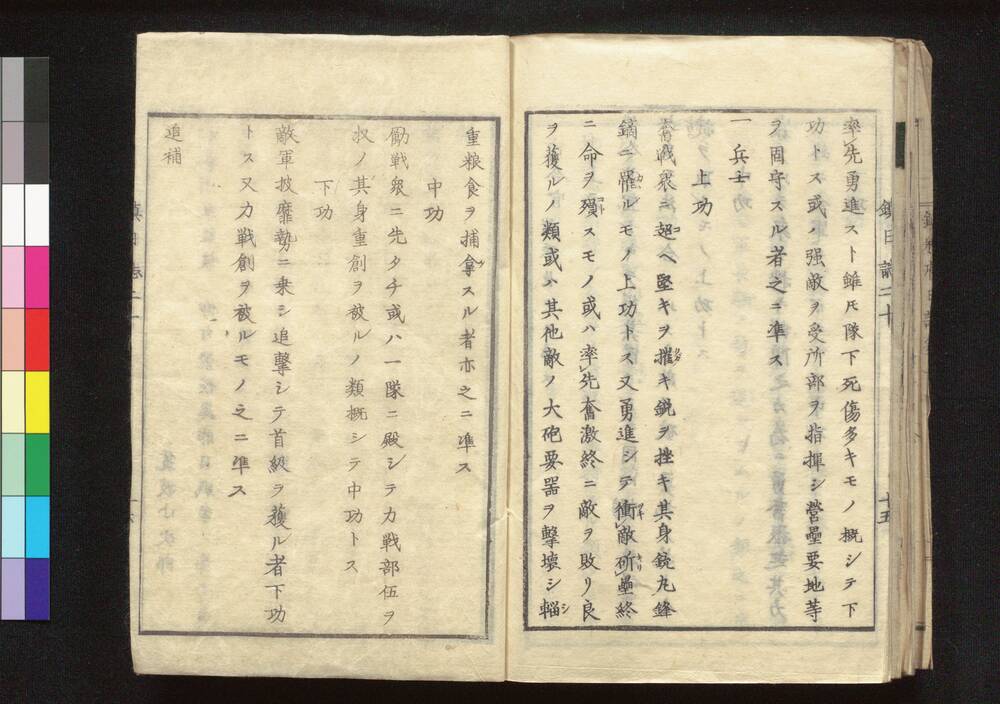 率先勇進スト雖𪜈隊下死傷多キモノ概シテ下
功トス或ハ强敵ヲ受所部ヲ指揮シ營壘要地等
ヲ固守スル者之ニ凖ス
一兵士
上功
奮戰衆ニ超ヘ堅キヲ摧キ鋭ヲ挫キ其身銃丸鋒
鏑ニ罹ルモノ上功トス又勇進シテ衝敵斫壘終
ニ命ヲ殞スモノ或ハ率先奮激終ニ敵ヲ敗リ良
ヲ獲ルノ類或ハ其他敵ノ大砲要器ヲ擊壞シ輜
鎭日誌二十
十五
重粮食ヲ捕拿スル者亦之ニ凖ス
中功
勵戰衆ニ先タチ或ハ一隊ニ殿シテ力戰部伍ヲ
収ノ其身重創ヲ被ルノ類概シテ中功トス
下功
敵軍披靡勢ニ乗シ追擊シテ首級ヲ獲ル者下功
トス又力戰創ヲ被ルモノ之ニ凖ス
追補